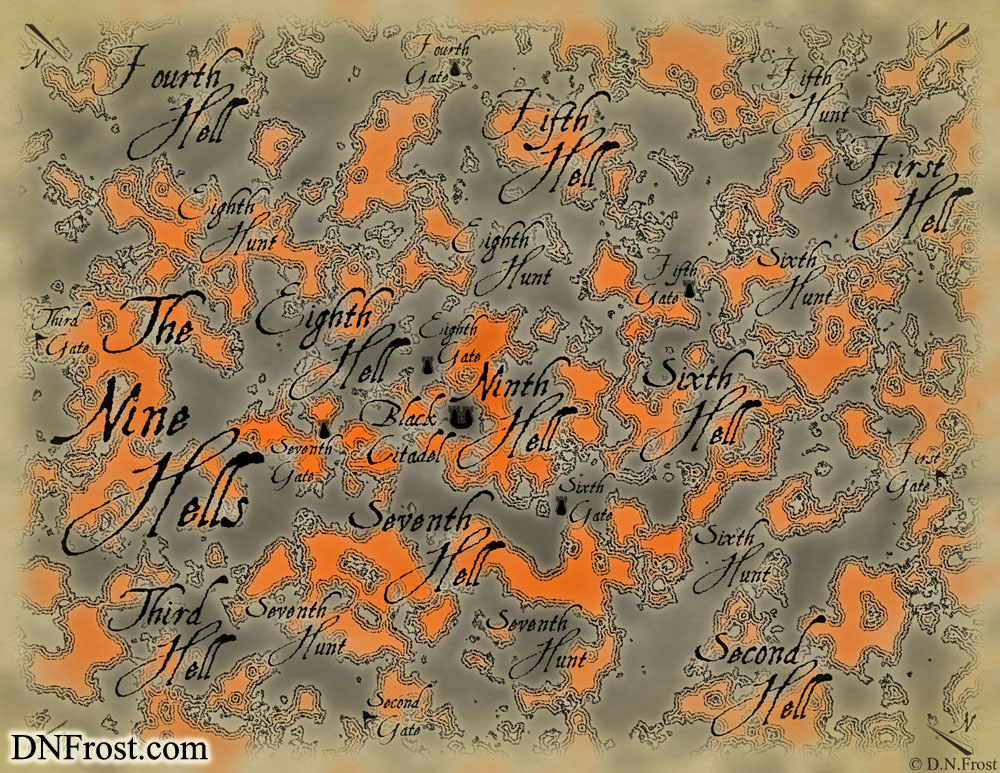 N
N
Fourth
Hell
Fourth
Gate
Fifth
Hell
Fifth
Hunt
First
Hell
Eighth
Hunt
Eighth
Hunt
Fifth
Gate
Sixth
Hunt
Third
Gate
The
Nine
Hells
Eighth
Hell
Eighth
Gate
Ninth
Hell
Black
Citadel
Sixth
Hell
Seventh
Gate
First
Gate
Sixth
Gate
Seventh
Hell
Sixth
Hunt
Third
Hell
Seventh
Hunt
Seventh
Hunt
Second
Hell
Second
Gate
N
DNFrost.com
© D.N.Frost